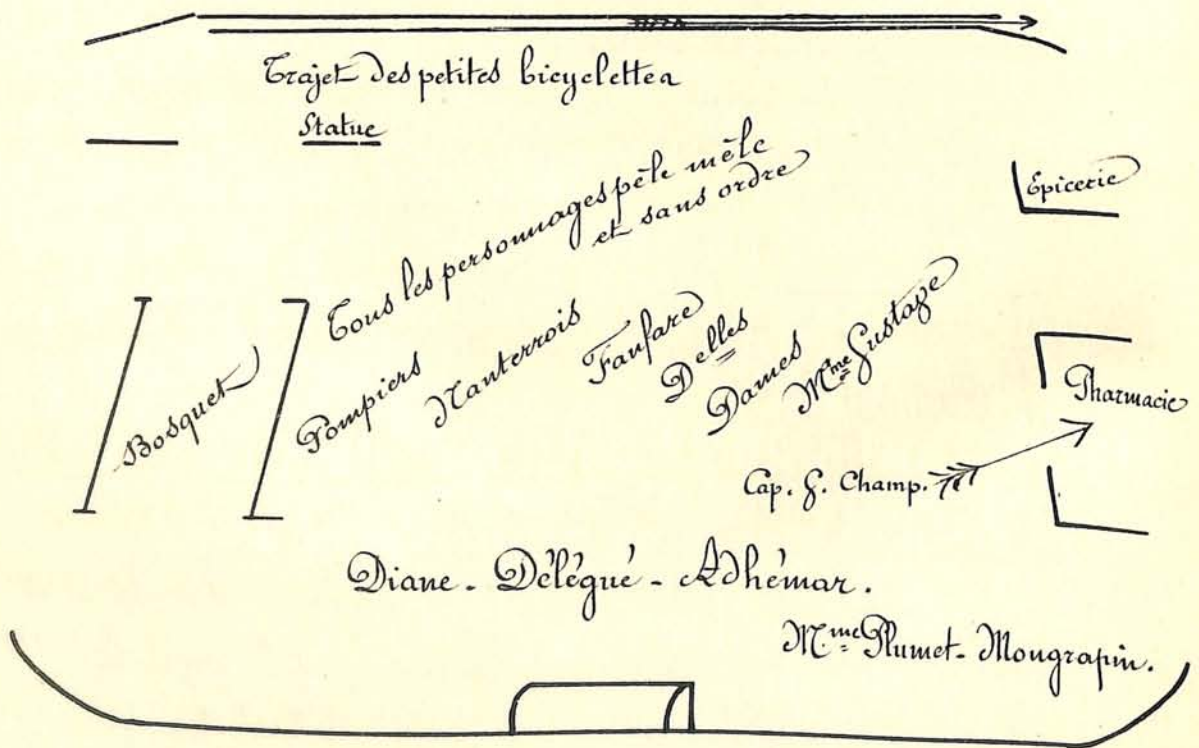 Trajet des petites bicyclettes
Statue
Tous les personnages pêle mêle
et sans ordre
Epicerie
Bosquet
Pompiers
Nanterrois
Fanfare
Delles
Dames
Mme Gustave
Pharmacie
Cap. G. Champ.
Diane - Délégué - Adhémar.
Mme Plumet - Mongrapin.